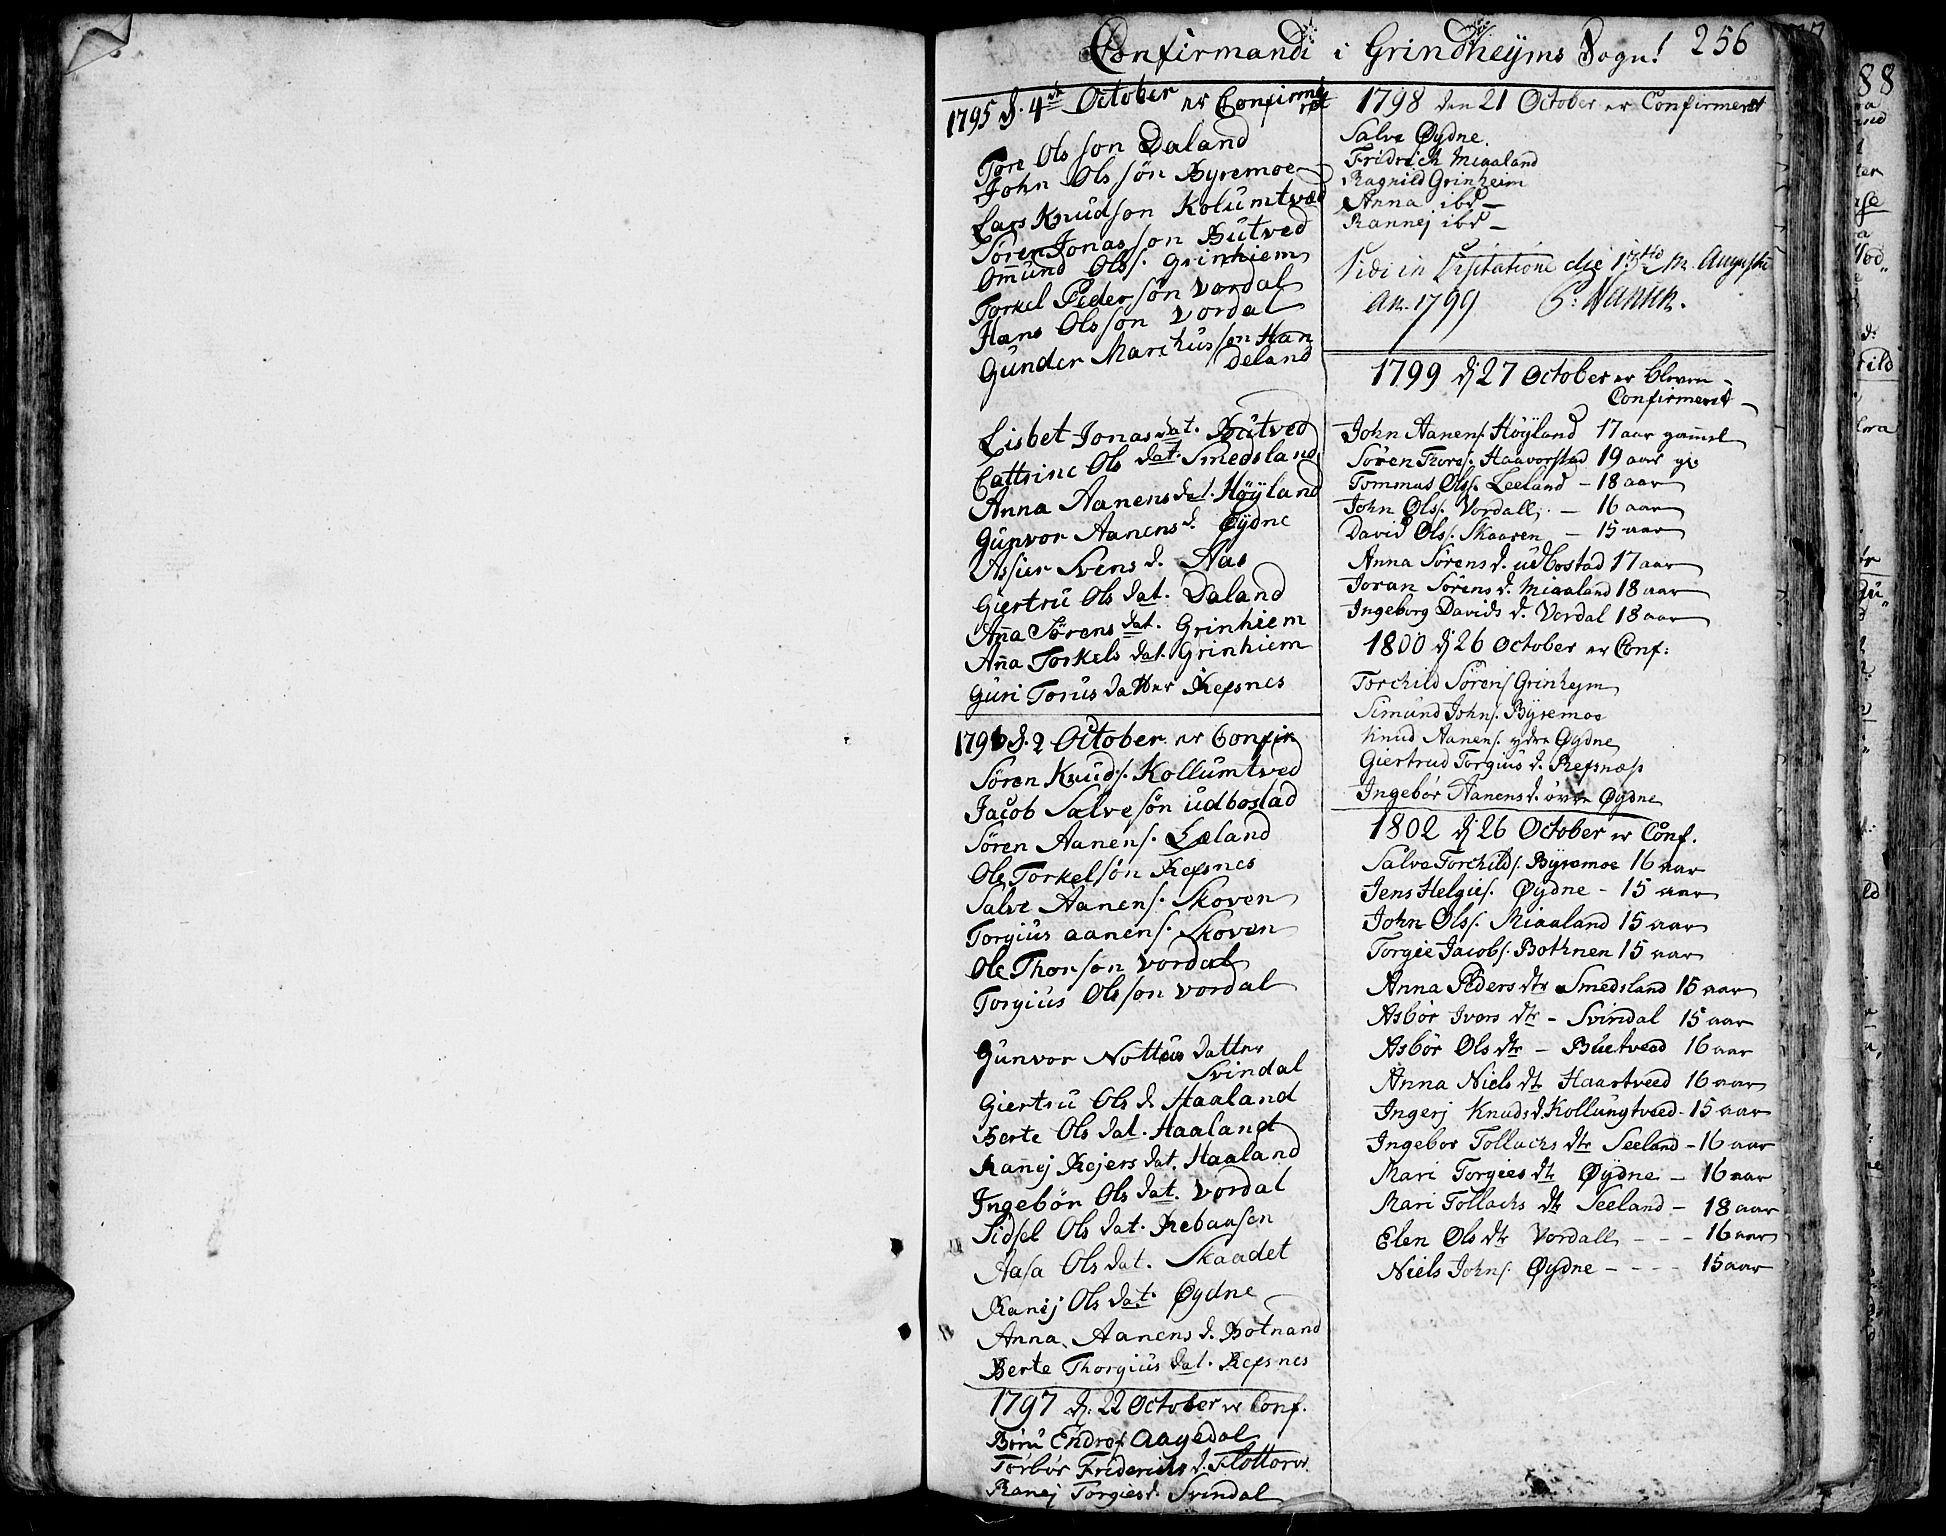 Confirmandi i Grindheÿms Sogn! 256
1795 d. 4de October er Confirme
ret
Tore Ols son Daland
John Ols søn Byremoe
Lars Knudson Kolumtved
Søren Jonas son Butved
Omund Ols s. Grinhiem
Torkel Peder søn Vordal
Hans Olsson Vordal
Gunder Marchusson Han
deland
Lisbet Jonas dat. Butved
Cattrine Ols dat. Smedsland
Anna Aanens dat. Høÿland
Gunvor Aanens d. Øÿdne
Assier Svens d. Aas
Giertru Ols dat. Daland
Ana Sørens dat. Grinhiem
Ana Torkels dat. Grinhiem
Guri Torus datter Refsnes
1796 d. 2 October er Confir
Søren Knuds. Kollumtved
Jacob Salvesøn Udbostad
Søren Aanens. Læland
Ole Torkelsøn Refsnes
Salve Aanens. Skoven
Torgius aanens. Skoven
Ole Thorson Vordal
Torgius Olsson Vordal
Gunvor Nottus datter
Svindal
Giertru Ols d. Haaland
Berte Ols dat. Haaland
Ranej Rejers dat. Haaland
Ingebør Ols dat. Vordal
Sidsel Ols dat. Rebaasen
Aasa Ols dat. Skaadet
Ranej Ols dat. Øydne
Anna Aanens d. Botnand
Berte Thorgius dat. Refsnes
1797 d. 22 October er Conf.
Børu Endres Aagedal
Torbør Friderichs d. Flottorp
Ranej Torgies d. Svindal
1798 den 21 October er Confirmeret
Salve Øydne.
Fridrich Miaaland
Ragnild Grinheim
Anna ibd –
Rannej ibd –
Vidi in Visitatione die 17td M. Augusti
an. 1799 P: Hansen.
1799 dj 27 October er bleven
Confirmeret
John Aanens. Høÿland 17 aar gamel
Søren Tores. Haavorstad 19 aar g.
Tommas Ols. Leeland – 18 aar
John Ols. Vordall – 16 aar
David Ols. Skaaren – 15 aar
Anna Sørens d. Udbostad 17 aar
Joran Sørens d. Miaaland 18 aar
Ingeborg Davids d. Vordal 18 aar
1800 dj 26 October er Conf:
Torchild Sørens Grinheym
Simund Johns. Bÿremoe
Knud Aanens. ydre Øydne
Giertrud Torgius d. Refsnæss
Ingebør Aanens d. øvre Øydne
1802 dj 26 October er Conf.
Salve Torchilds. Bÿremoe 16 aar
Jens Helgies. Øydne – 15 aar
John Ols. Miaaland 15 aar
Torgie Jacobs. Bothnen 15 aar
Anna Peders dtr Smedsland 15 aar
Asbør Ivers dtr – Svindal 15 aar
Asbør Ols dtr – Buetveed 16 aar
Anna Niels dtr Haartveed 16 aar
Ingerj Knuds d. Kollungtveed – 15 aar
Ingebor Tollachs dtr Seeland – 16 aar
Mari Torgies dtr Øÿdne – 16 aar
Mari Tollachs dtr Seeland – 18 aar
Elen Ols dtr Vordall – – – 16 aar
Niels Johns. Øydne – – – – 15 aar